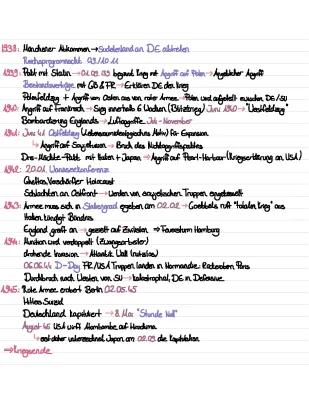 1938: Münchener Abkommen → Sudetenland an DE abtreten
Reichspogromnacht 09./10.11
1939: Pakt mit Stalin → 01.09.39 beginnt Krieg mit Angriff auf Polen → Angeblicher Angriff
Beistandsverträge mit GB & FR → Erklären DE den Krieg
Polenfeldzug + Angriff von Osten aus von roter Armee → Polen wird aufgeteilt zwischen DE/SU
1940: Angriff auf Frankreich → Sieg innerhalb 6 Wochen (Blitzkrieg) Juni 1940 → "Westfeldzug"
Bombardierung Englands → Luftangriffe Juli - November
1941: Juni 41 Ostfeldzug (Lebensraumideologisches Motiv) für Expansion
↳ Angriff auf Sowjetunion → Bruch des Nichtangriffspaktes
Drei-Mächte-Pakt mit Italien + Japan → Angriff auf Pearl-Harbour (Kriegserklärung an USA)
1942: 20.01. Wannseekonferenz
Ghettos, Verschärfter Holocaust
Schlachten an Ostfront → Werden von sowjetischen Truppen eingekesselt
1943: Armee muss sich in Stalingrad ergeben am 02.02 → Goebbels ruft "totalen Krieg" aus
Italien kündigt Bündnis
England greift an → gezielt auf Zivilisten ⇒ Feuersturm Hamburg
1944: Munition wird verdoppelt (Zwangsarbeiter)
drohende Invasion → Atlantik Wall (nutzlos)
06.06.44 D-Day FR/USA Truppen landen in Normandie
Durchbruch nach Westen von SU → katastrophal, DE in Defensive
1945: Rote Armee erobert Berlin 02.05.45
Hitlers Suizid
Deutschland kapituliert → 8. Mai "Stunde Null"
August 45 USA wirft Atombombe auf Hiroshima
↳ erst daher unterzeichnet Japan am 02.09. die Kapitulation
⇒ Kriegsende